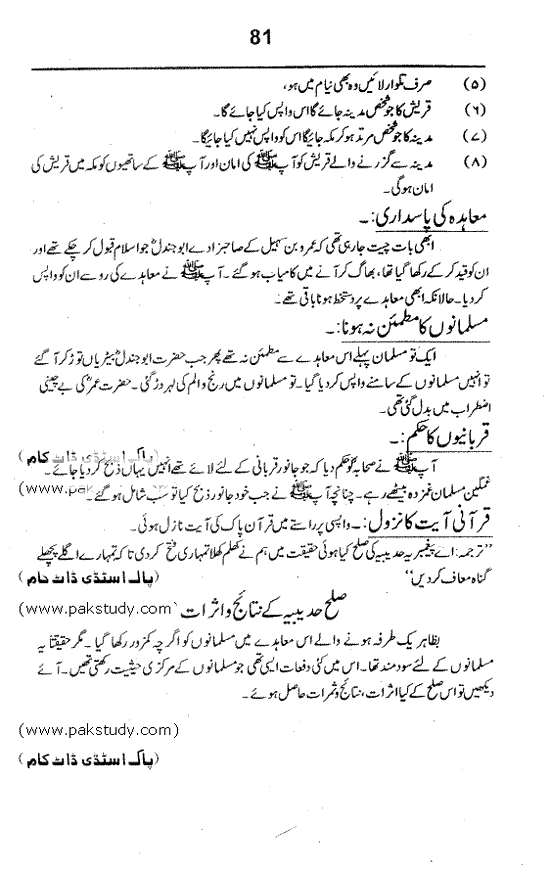 81
(۵) صرف تلوار لائیں وہ بھی نیام میں ہو،
(۶) قریش کا جو شخص مدینہ جائے گا اس واپس کیا جائے گا۔
(۷) مدینہ کا جو شخص مرتد ہو کر مکہ جائیگا اس کو واپس نہیں کیا جائیگا۔
(۸) مدینہ سے گزرنے والے قریش کو آپ ﷺ کی امان اور آپ ﷺ کے ساتھیوں کو مکہ میں قریش کی
امان ہو گی۔
معاہدہ کی پاسداری:۔
ابھی بات چیت جاری تھی کہ عمرو بن سہیل کے صاحبزادے ابو جندلؓ جو اسلام قبول کر چکے تھے اور
ان کو قید کر کے رکھا گیا تھا، بھاگ کر آنے میں کامیاب ہو گئے۔ آپ ﷺ نے معاہدے کی رو سے ان کو واپس
کر دیا۔ حالانکہ ابھی معاہدے پر دستخط ہونا باقی تھے۔
مسلمانوں کا مطمئن نہ ہونا:۔
ایک تو مسلمان پہلے اس معاہدے سے مطمئن نہ تھے پھر جب حضرت ابو جندلؓ بیڑیاں توڑ کر آ گئے
تو انہیں مسلمانوں کے سامنے واپس کر دیا گیا۔ تو مسلمانوں میں رنج والم کی لہر دوڑ گئی۔ حضرت عمرؓ کی بے چینی
اضطراب میں بدل گئی تھی۔
قربانیوں کا حکم:۔
آپ ﷺ نے صحابہؓ کو حکم دیا کہ جو جانور قربانی کے لئے لائے تھے انہیں یہاں ذبح کر دیا جائے۔
(پاک اسٹڈی ڈاٹ کام)
غمگین مسلمان غمزدہ بیٹھے رہے۔ چنانچہ آپ ﷺ نے جب خود جانور ذبح کیا تو سب شامل ہو گئے۔
(www.pak
قرآنی آیت کا نزول:۔ واپسی پر راستے میں قرآن پاک کی آیت نازل ہوئی۔
"ترجمہ: اے پیغمبر یہ حدیبیہ کی صلح کیا ہوئی حقیقت میں ہم نے کھلم کھلا تمہاری فتح کر دی تاکہ تمہارے اگلے پچھلے
گناہ معاف کر دیں"
(پاک اسٹڈی ڈاٹ کام)
صلح حدیبیہ کے نتائج و اثرات
(www.pakstudy.com
بظاہر یک طرفہ ہونے والے اس معاہدے میں مسلمانوں کو اگرچہ کمزور رکھا گیا۔ مگر حقیقتاً یہ
مسلمانوں کے لئے سود مند تھا۔ اس میں کئی دفعات ایسی تھی جو مسلمانوں کے مرکزی حیثیت رکھتی تھیں۔ آئے
دیکھیں تو اس صلح کے کیا اثرات، نتائج و ثمرات حاصل ہوئے۔
(www.pakstudy.com)
(پاک اسٹڈی ڈاٹ کام)